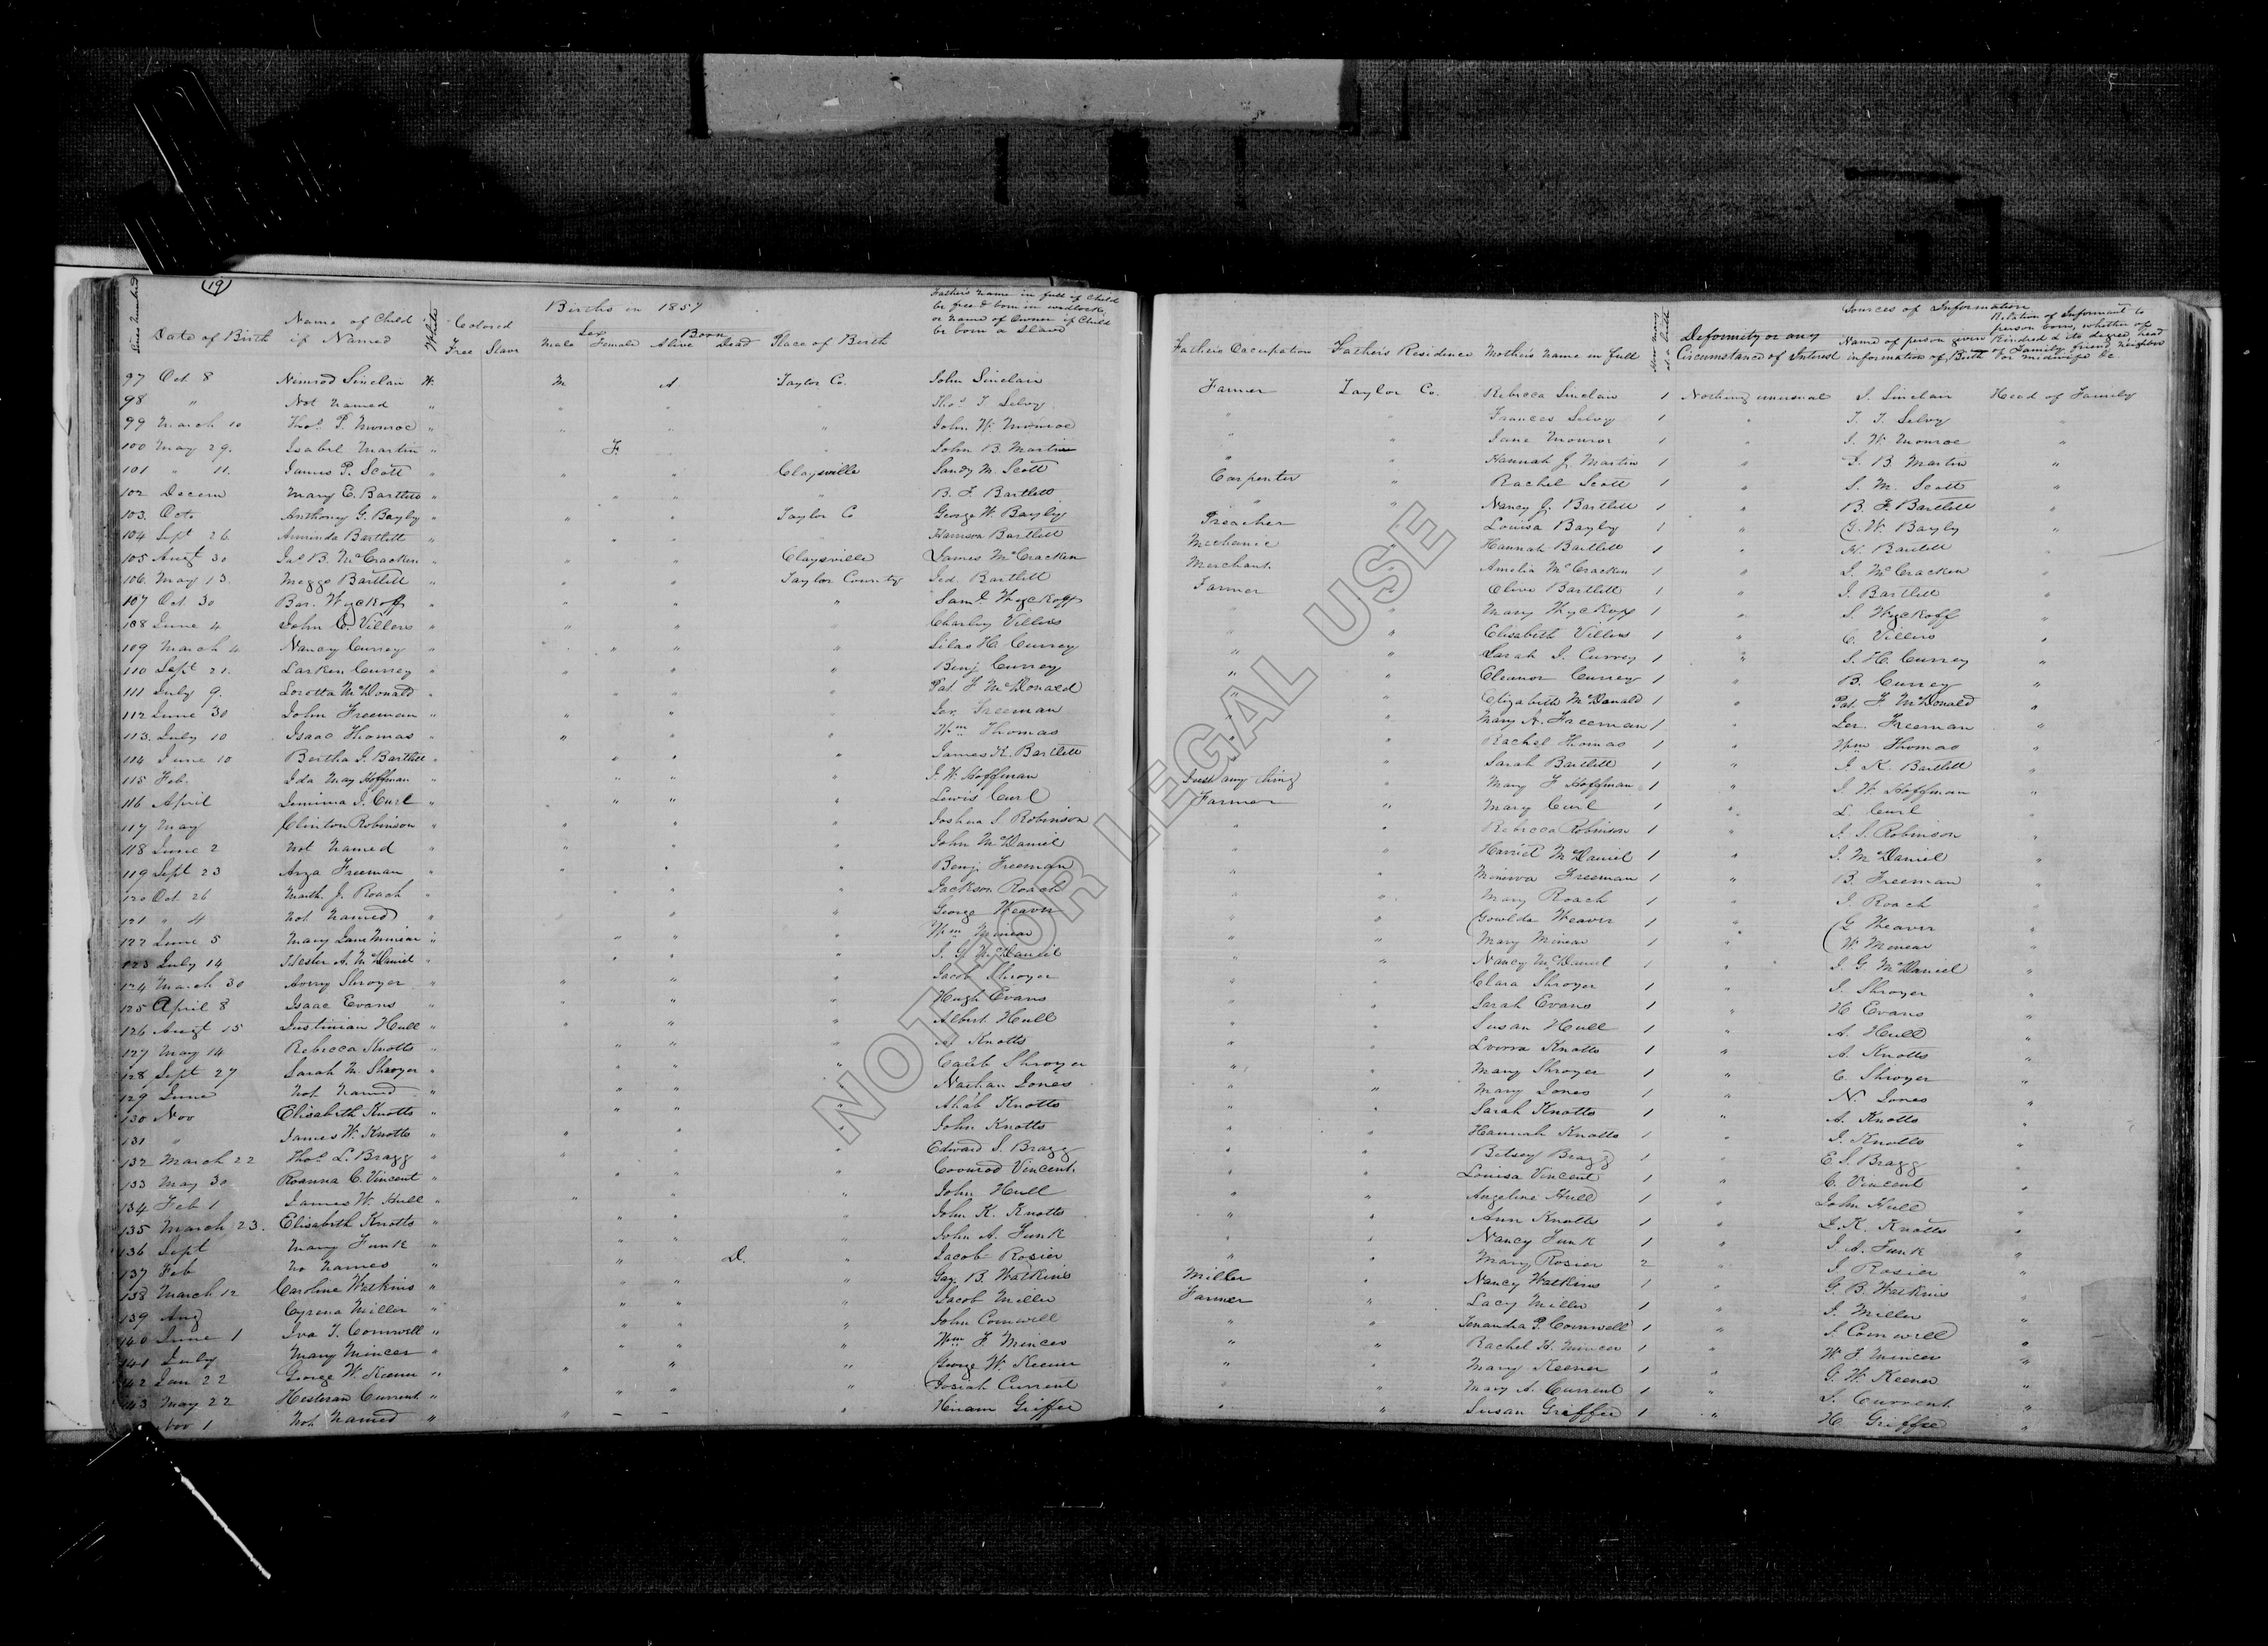 19
Births in 1857
Lines numbered
Date of Birth
Name of Child if Named
White
Colored
Free
Slave
Sex
Male
Female
Born
Alive
Dead
Place of Birth
Father's name in full if Child
be free & born in wedlock,
or name of Owner if Child
be born a Slave
Father's Occupation
Father's Residence
Mother's name in full
How many at a birth
Deformity or any
Circumstance of Interest
Sources of Information
Name of person given
information of Birth
Relation of Informant to
person born, whether of
Kindred & its degree, head
of Family, friend, neighbor
or midwife &c
97 Oct 8 Nimrod Sinclair W. M A Taylor Co. John Sinclair Farmer Taylor Co. Rebecca Sinclair 1 Nothing unusual J. Sinclair Head of Family
98 " Not Named " " " " Thos. T. Selvy " " Frances Selvy 1 " T. T. Selvy "
99 March 10 Thos. P. Monroe " " " " John W. Monroe " " Jane Monroe 1 " J. W. Monroe "
100 May 29. Isabel Martin " F " " John B. Martin " " Hannah J. Martin 1 " J. B. Martin "
101 " 11. James P. Scott " " " Claysville Sandy M. Scott Carpenter " Rachel Scott 1 " S. M. Scott "
102 Decem Mary E. Bartlett " " " " B. F. Bartlett " " Nancy J. Bartlett 1 " B. F. Bartlett "
103. Oct. Anthony G. Bayly " " " Taylor Co George W. Bayly Preacher " Louisa Bayly 1 " G. W. Bayly "
104 Sept 26 Aminda Bartlett " " " " Harrison Bartlett Mechanic " Hannah Bartlett 1 " H. Bartlett "
105 Augt 30 Jas. B. McCracken " " " Claysville James McCracken Merchant " Amelia McCracken 1 " J. McCracken "
106. May 13. Bartlett " " " Taylor County Jed. Bartlett Farmer " Olive Bartlett 1 " J. Bartlett "
107 Oct 30 Bar. Wyckoff " " " " Saml. Wyckoff " " Mary Wyckoff 1 " S. Wyckoff "
108 June 4 John C. Villers " " " " Charley Villers " " Elisabeth Villers 1 " C. Villers "
109 March 4 Nancy Currey " " " " Silas H. Currey " " Sarah J. Currey 1 " S. H. Currey "
110 Sept 21. Larken Currey " " " " Benj Currey " " Eleanor Currey 1 " B. Currey "
111 July 9. Loretta McDonald " " " " Pat. F McDonald " " Elizabeth McDonald 1 " Pat. F. McDonald "
112 June 30 John Freeman " " " " Jer. Freeman " " Mary A. Freeman 1 " Jer. Freeman "
113. July 10 Isaac Thomas " " " " Wm Thomas " " Rachel Thomas 1 " Wm Thomas "
114 June 10 Bertha J. Bartlett " " " " James K. Bartlett " " Sarah Bartlett 1 " J. K. Bartlett "
115 Feb. Ida May Hoffman " " " " J. W. Hoffman Just any thing " Mary F Hoffman 1 " J. W. Hoffman "
116 April Jemima J. Curl " " " " Lewis Curl Farmer " Mary Curl 1 " L. Curl "
117 May Clinton Robinson " " " " Joshua S Robinson " " Rebecca Robinson 1 " J. S. Robinson "
118 June 2 Not Named " " " " John McDaniel " " Harriet McDaniel 1 " J. McDaniel "
119 Sept 23 Arza Freeman " " " " Benj Freeman " " Minerva Freeman 1 " B. Freeman "
120 Oct 26 Marth. J. Roach " " " " Jackson Roach " " Mary Roach 1 " J. Roach "
121 " 4 Not Named " " " " George Weaver " " Weaver 1 " G Weaver "
122 June 5 Mary Jane Minear " " " " Wm Minear " " Mary Minear 1 " W. Minear "
123 July 14 Hester A. McDaniel " " " " J. G. McDaniel " " Nancy McDaniel 1 " J. G McDaniel "
124 March 30 Avery Shroyer " " " " Jacob Shroyer " " Clara Shroyer 1 " J. Shroyer "
125 April 8 Isaac Evans " " " " Hugh Evans " " Sarah Evans 1 " H Evans "
126 Augt 15 Justinian Hull " " " " Albert Hull " " Susan Hull 1 " A. Hull "
127 May 14 Rebecca Knotts " " " " A Knotts " " Knotts 1 " A. Knotts "
128 Sept 27 Sarah M. Shroyer " " " " Caleb Shroyer " " Mary Shroyer 1 " C. Shroyer "
129 June Not Named " " " " Nathan Jones " " Mary Jones 1 " N. Jones "
130 Nov Elisabeth Knotts " " " " Ahab Knotts " " Sarah Knotts 1 " A. Knotts "
131 " James W. Knotts " " " " John Knotts " " Hannah Knotts 1 " J. Knotts "
132 March 22 Thos. L. Bragg " " " " Edward S. Bragg " " Betsey Bragg 1 " E. S. Bragg "
133 May 30 Roanna C. Vincent " " " " Coonrod Vincent " " Louisa Vincent 1 " C. Vincent "
134 Feb 1 James W. Hull " " " " John Hull " " Angeline Hull 1 " John Hull "
135 March 23. Elisabeth Knotts " " " " John K. Knotts " " Ann Knotts 1 " J. K. Knotts "
136 Sept Mary Funk " " " " John A. Funk " " Nancy Funk 1 " J. A. Funk "
137 Feb No Names " " D. " Jacob Rosier " " Mary Rosier 2 " J. Rosier "
138 March 12 Caroline Watkins " " " " B. Watkins Miller " Nancy Watkins 1 " G. B. Watkins "
139 Aug Cyrena Miller " " " " Jacob Miller Farmer " Lacy Miller 1 " J. Miller "
140 June 1 Iva T. Cornwell " " " " John Cornwell " " P. Cornwell 1 " J. Cornwell "
141 July Mary Mincer " " " " Wm F. Mincer " " Rachel H. Mincer 1 " W. F. Mincer "
42 Jan 22 George W. Keener " " " " George W. Keener " " Mary Keener 1 " G. W. Keener "
43 May 22 Current " " " " Josiah Current " " Mary A. Current 1 " J. Current "
Nov 1 Not Named " " - - " Hiram Griffee " " Susan Griffee 1 " H. Griffee "
NOT FOR LEGAL USE